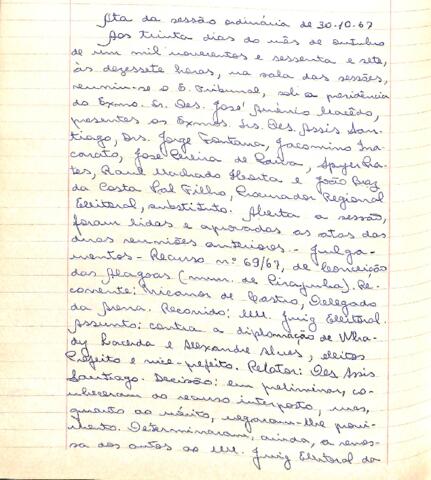 Ata da sessão ordinária de 30.10.67
Aos trinta dias do mês de outubro
de um mil novecentos e sessenta e sete,
às dezessete horas, na sala das sessões,
reuniu-se o E. Tribunal, sob a presidência
do Exmo. Sr. Des. José Américo Macêdo,
presentes os Exmos. Srs. Des. Assis San-
tiago, Drs. Jorge Fontana, Jacomino Ina-
carato, José Pereira de Paiva, Pra-
tes, Raul Machado Horta e João Braz
da Costa Val Filho, Procurador Regional
Eleitoral, substituto. Aberta a sessão,
foram lidas e aprovadas as atas das
duas reuniões anteriores. - Julga-
mentos - Recurso nº 69/67, de Conceição
das Alagoas (mun. de Pirajuba). Re-
corrente: Nicanos de Castro, Delegado
da Arena. Recorrido: MM. Juiz Eleitoral.
Assunto: contra a diplomação de Wha-
dy Lacerda e Alexandre Alves, eleitos
Prefeito e vice-prefeito. Relator: Des Assis
Santiago. Decisão: em preliminar, co-
nheceram do recurso interposto, mas,
quanto ao mérito, negaram-lhe provi-
mento. Determinaram, ainda, a remes-
sa dos autos ao MM. Juiz Eleitoral da